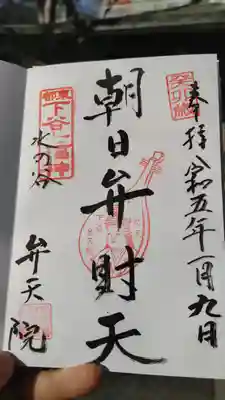 癸卯歳
奉拝 令和五年一月九日
朝日弁財天
東都
下谷七福神
水の谷
弁天院